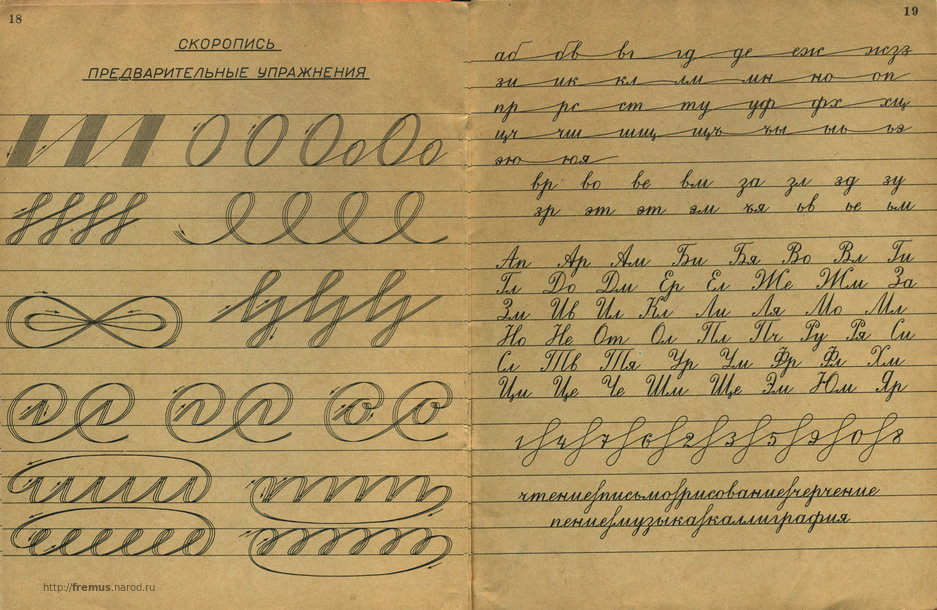 18
СКОРОПИСЬ
ПРЕДВАРИТЕЛЬНЫЕ УПРАЖНЕНИЯ
http://fremus.narod.ru
19
аб бв вг гд де еж жзз
зи ик кл лм мн но оп
пр рс ст ту уф фх хц
цч чш шщ щъ ъы ыь ьэ
эю юя
вр во ве вм за зл зд зу
зр эт эт эм ъя ьв ье ьм
Ап Ар Ам Би Бя Во Вл Ги
Гл До Дм Ер Ел Же Жм За
Зм Ив Ил Кл Ли Ля Мо Мл
Но Не От Ол Пл Пч Ру Ря Си
Сл Тв Тя Ур Ум Фр Фл Хм
Цм Це Че Шм Ще Эм Юм Яр
1 4 7 6 2 3 5 9 0 8
чтение письмо рисование черчение
пение музыка каллиграфия